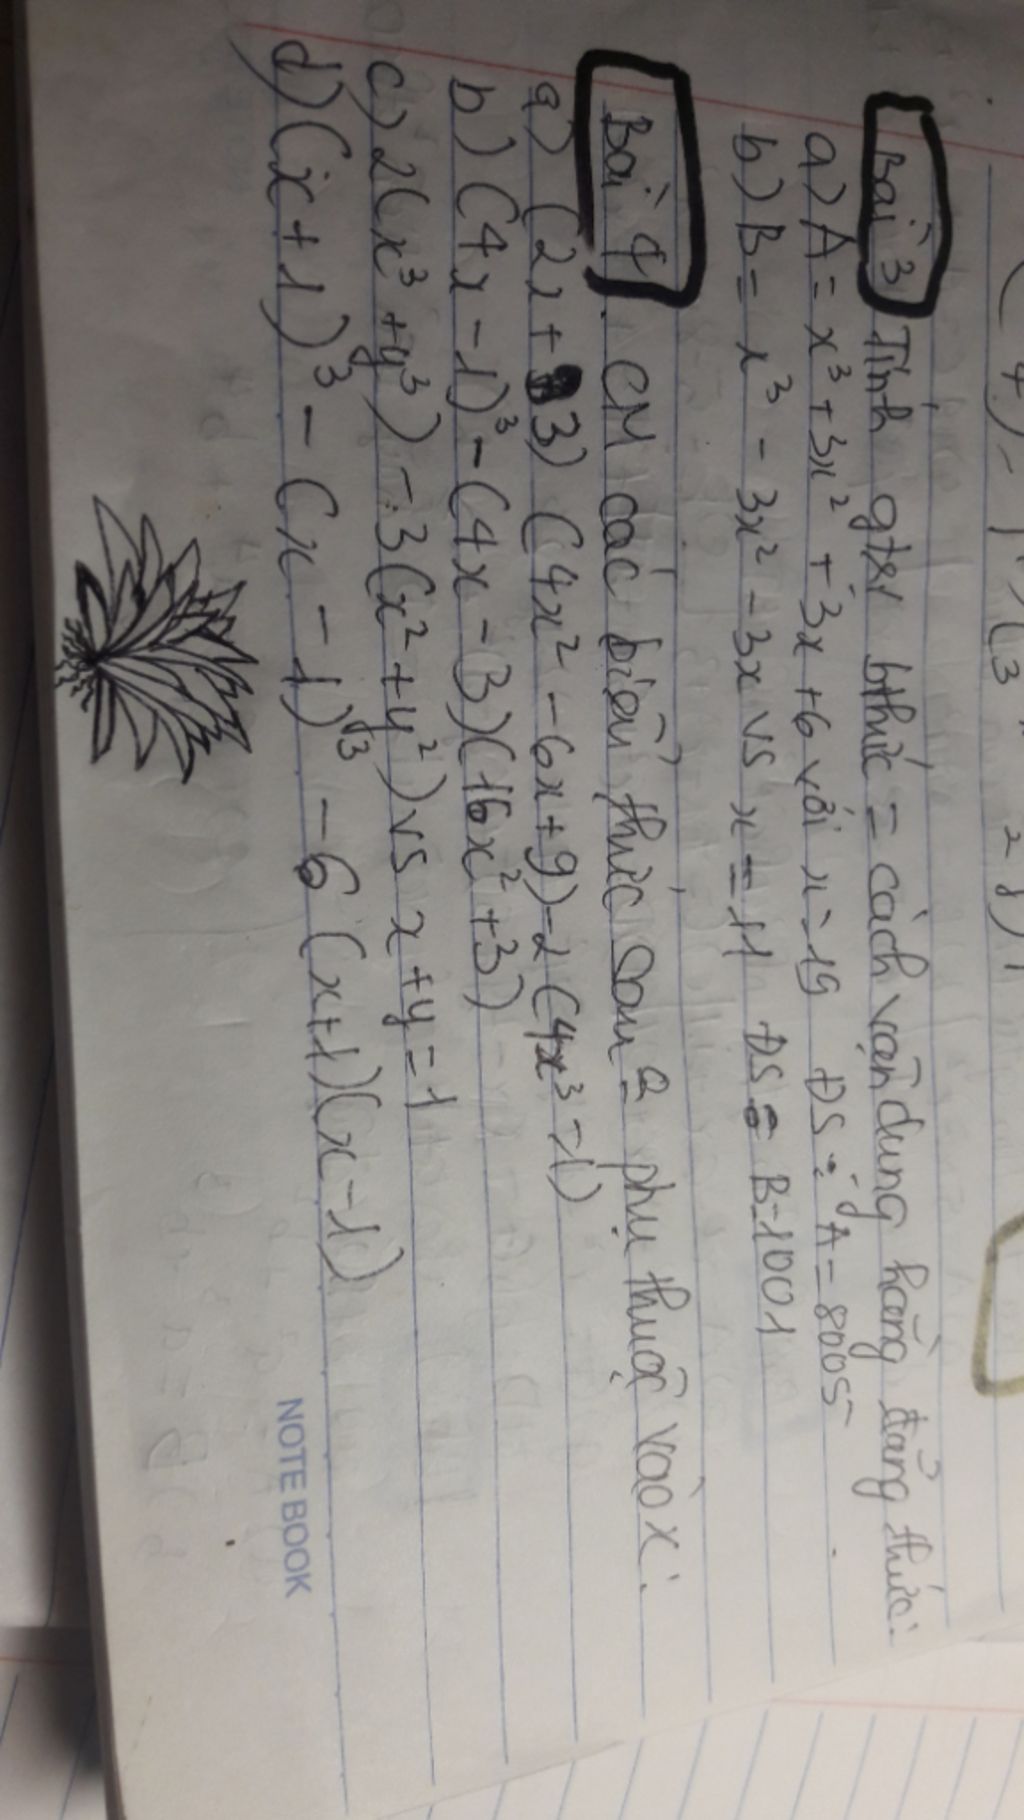 Bài 3 Tính gtrị bthức = cách vận dụng hằng đẳng thức:
a) A = x³ + 3x² + 3x + 6 với x = 19 ĐS: A = 8005
b) B = x³ - 3x² - 3x vs x = 11 ĐS = B = 1001
Bài 4. CM các biểu thức sau phụ thuộc vào x:
a) (2x + 3) (4x² - 6x + 9) - 2 (4x³ - 1)
b) (4x - 1)³ - (4x - 3)(16x² + 3)
c) 2(x³ + y³) - 3(x² + y²) vs x + y = 1
d) (x + 1)³ - (x - 1)³ - 6 (x + 1)(x - 1)
NOTE BOOK